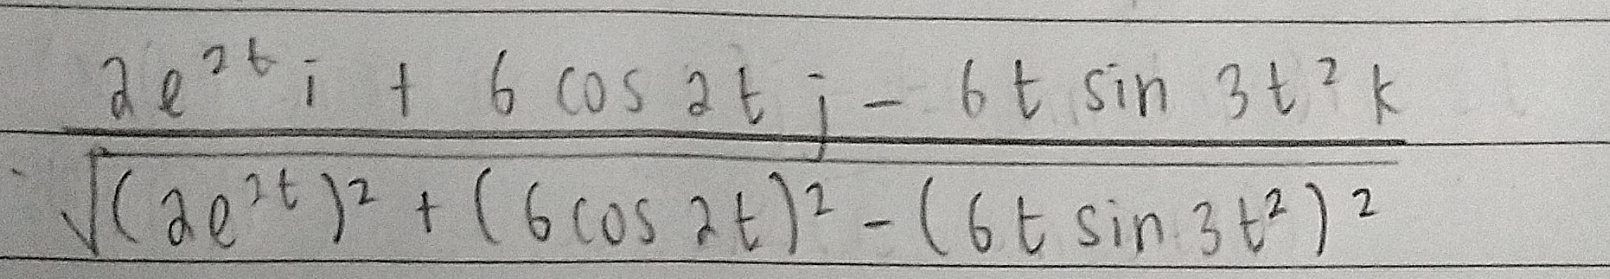 2e²ᵗ i + 6 cos 2t j - 6t sin 3t² k
√(2e²ᵗ)² + (6 cos 2t)² - (6t sin 3t²)²